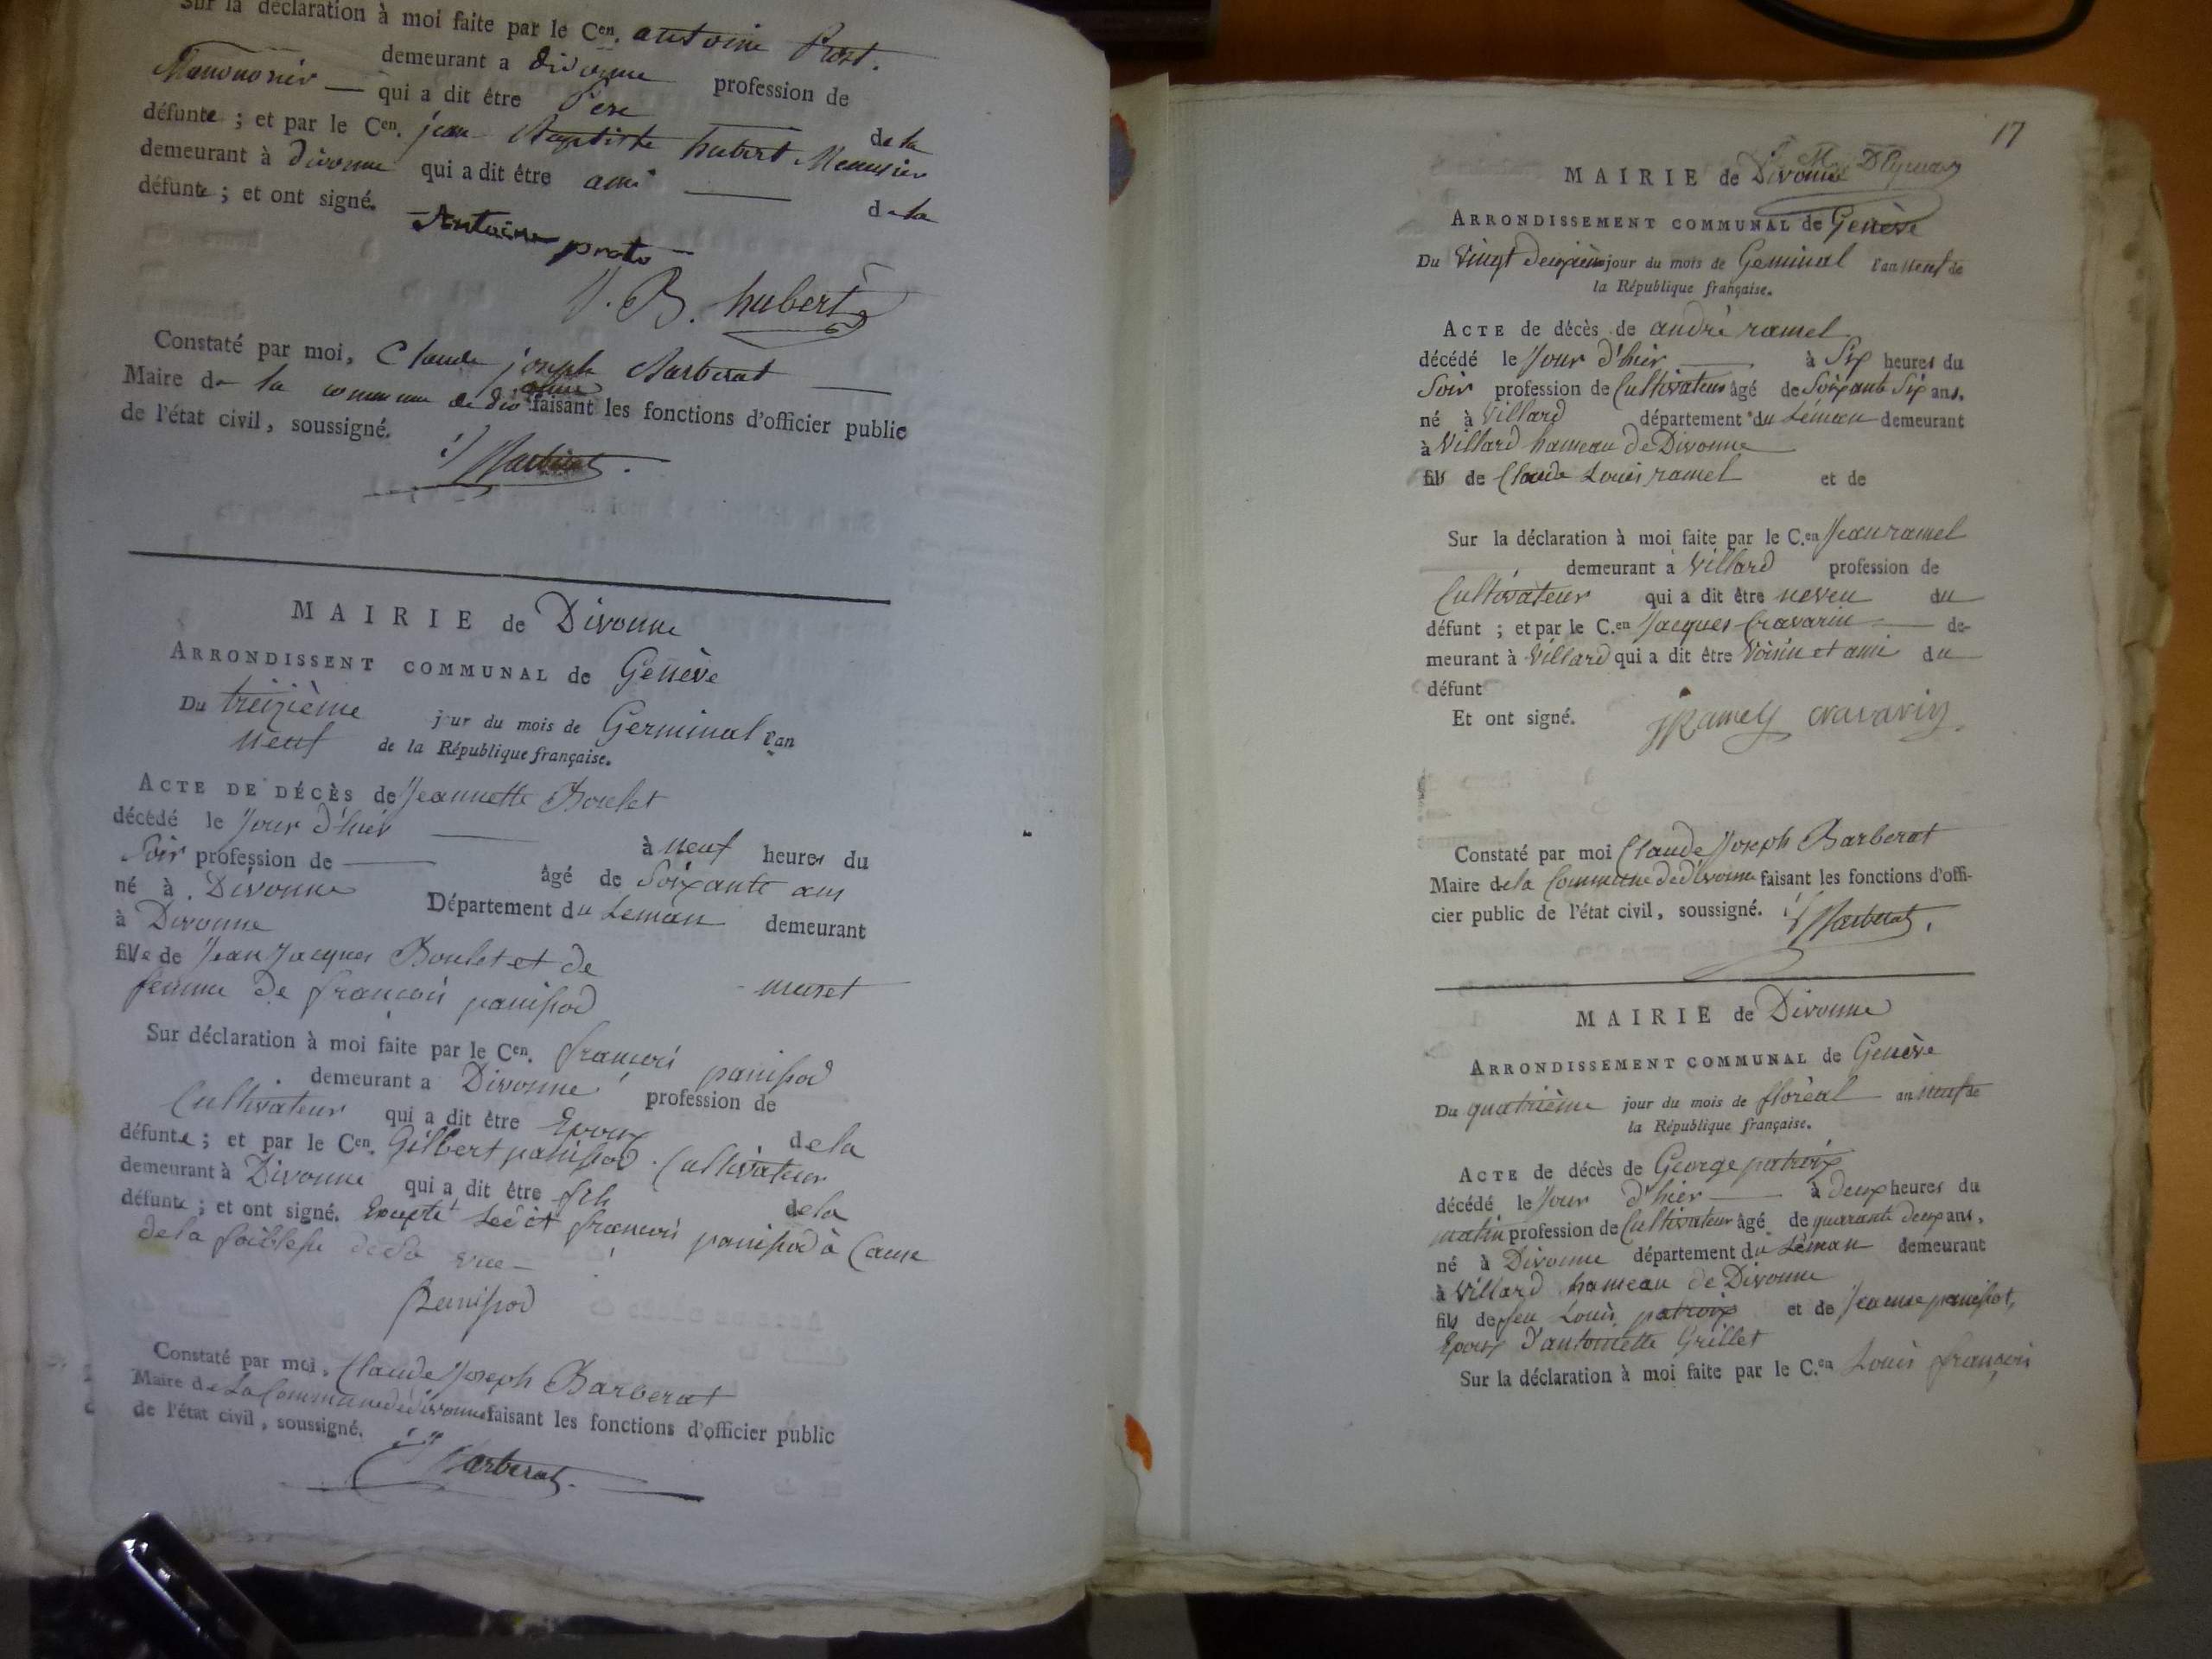 Sur la déclaration à moi faite par le Cen. antoine Prost.
demeurant a divonne profession de
qui a dit être Pere de la
défunte ; et par le Cen. jean Baptiste hubert Menusier
demeurant à divonne qui a dit être ami de la
défunte ; et ont signé.
Antoine proto
J. B. hubert
Constaté par moi, Claude joseph Barberat
Maire de la commune de divonne faisant les fonctions d'officier public
de l'état civil, soussigné.
Barberat.
MAIRIE de Divonne
ARRONDISSENT COMMUNAL de Genève
Du treizième jour du mois de Germinal l'an
neuf de la République française.
ACTE DE DÉCÈS de Jeannette Boulet
décédé le Jour d'hier à neuf heures du
Soir profession de âgé de Soixante ans
né à Divonne Département du Leman demeurant
à Divonne
fille de Jean Jacques Boulet et de muset
femme de françois panissod
Sur déclaration à moi faite par le Cen. françois panissod
demeurant a Divonne profession de
Cultivateur qui a dit être Epoux de la
défunte ; et par le Cen. Gilbert panissod Cultivateur
demeurant à Divonne qui a dit être fils de la
défunte ; et ont signé. Excepté Led.it françois panissod à Cause
de la foiblesse de Sa vue
Panissod
Constaté par moi, Claude Joseph Barberat
Maire de La Commune de divonne faisant les fonctions d'officier public
de l'état civil, soussigné.
Barberat.
17
MAIRIE de Divonne
ARRONDISSEMENT COMMUNAL de Genève
Du Vingt deuxième jour du mois de Geminal l'an neuf de
la République française.
ACTE de décès de andrè ramel
décédé le Jour d'hier à Six heures du
Soir profession de Cultivateur âgé de Soixante Six ans.
né à Villard département du Léman demeurant
à Villard hameau de Divonne
fils de Claude Louis ramel et de
Sur la déclaration à moi faite par le C.en Jean ramel
demeurant à Villard profession de
Cultivateur qui a dit être neveu du
défunt ; et par le C.en Jacques Cravarin de-
meurant à Villard qui a dit être Voisin et ami du
défunt
Et ont signé. J Ramel cravarin
Constaté par moi Claude Joseph Barberat
Maire de la Commune de divonne faisant les fonctions d'offi-
cier public de l'état civil, soussigné. Barberat.
MAIRIE de Divonne
ARRONDISSEMENT COMMUNAL de Genève
Du quatrième jour du mois de floréal an neuf de
la République française.
ACTE de décès de George patroix
décédé le Jour d'hier à deux heures du
matin profession de Cultivateur âgé de quarante deux ans,
né à Divonne département du Léman demeurant
à Villard hameau de Divonne
fils de feu Louis patroix et de Jeanne panissot,
Epoux d'antoinette Grillet
Sur la déclaration à moi faite par le C.en Louis françois